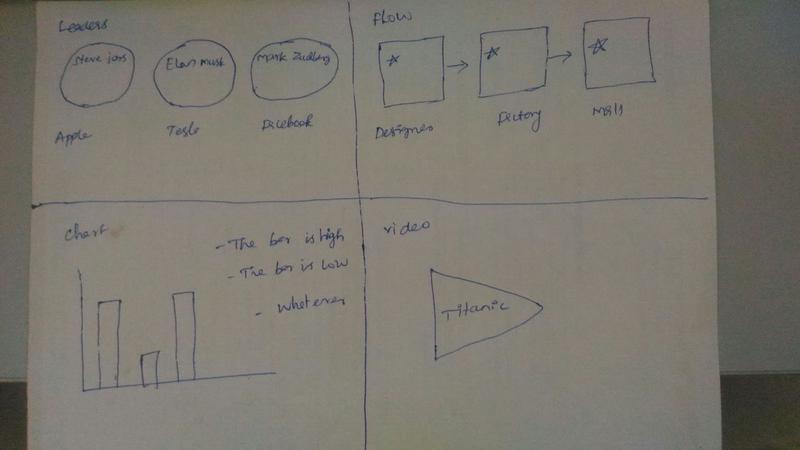 Leaders
Steve jobs
Elon musk
Mark Zuckberg
Apple
Tesle
Facebook
Flow
Designer
Factory
Mall
Chart
- The bar is high
- The bar is low
- Whatever
video
Titanic